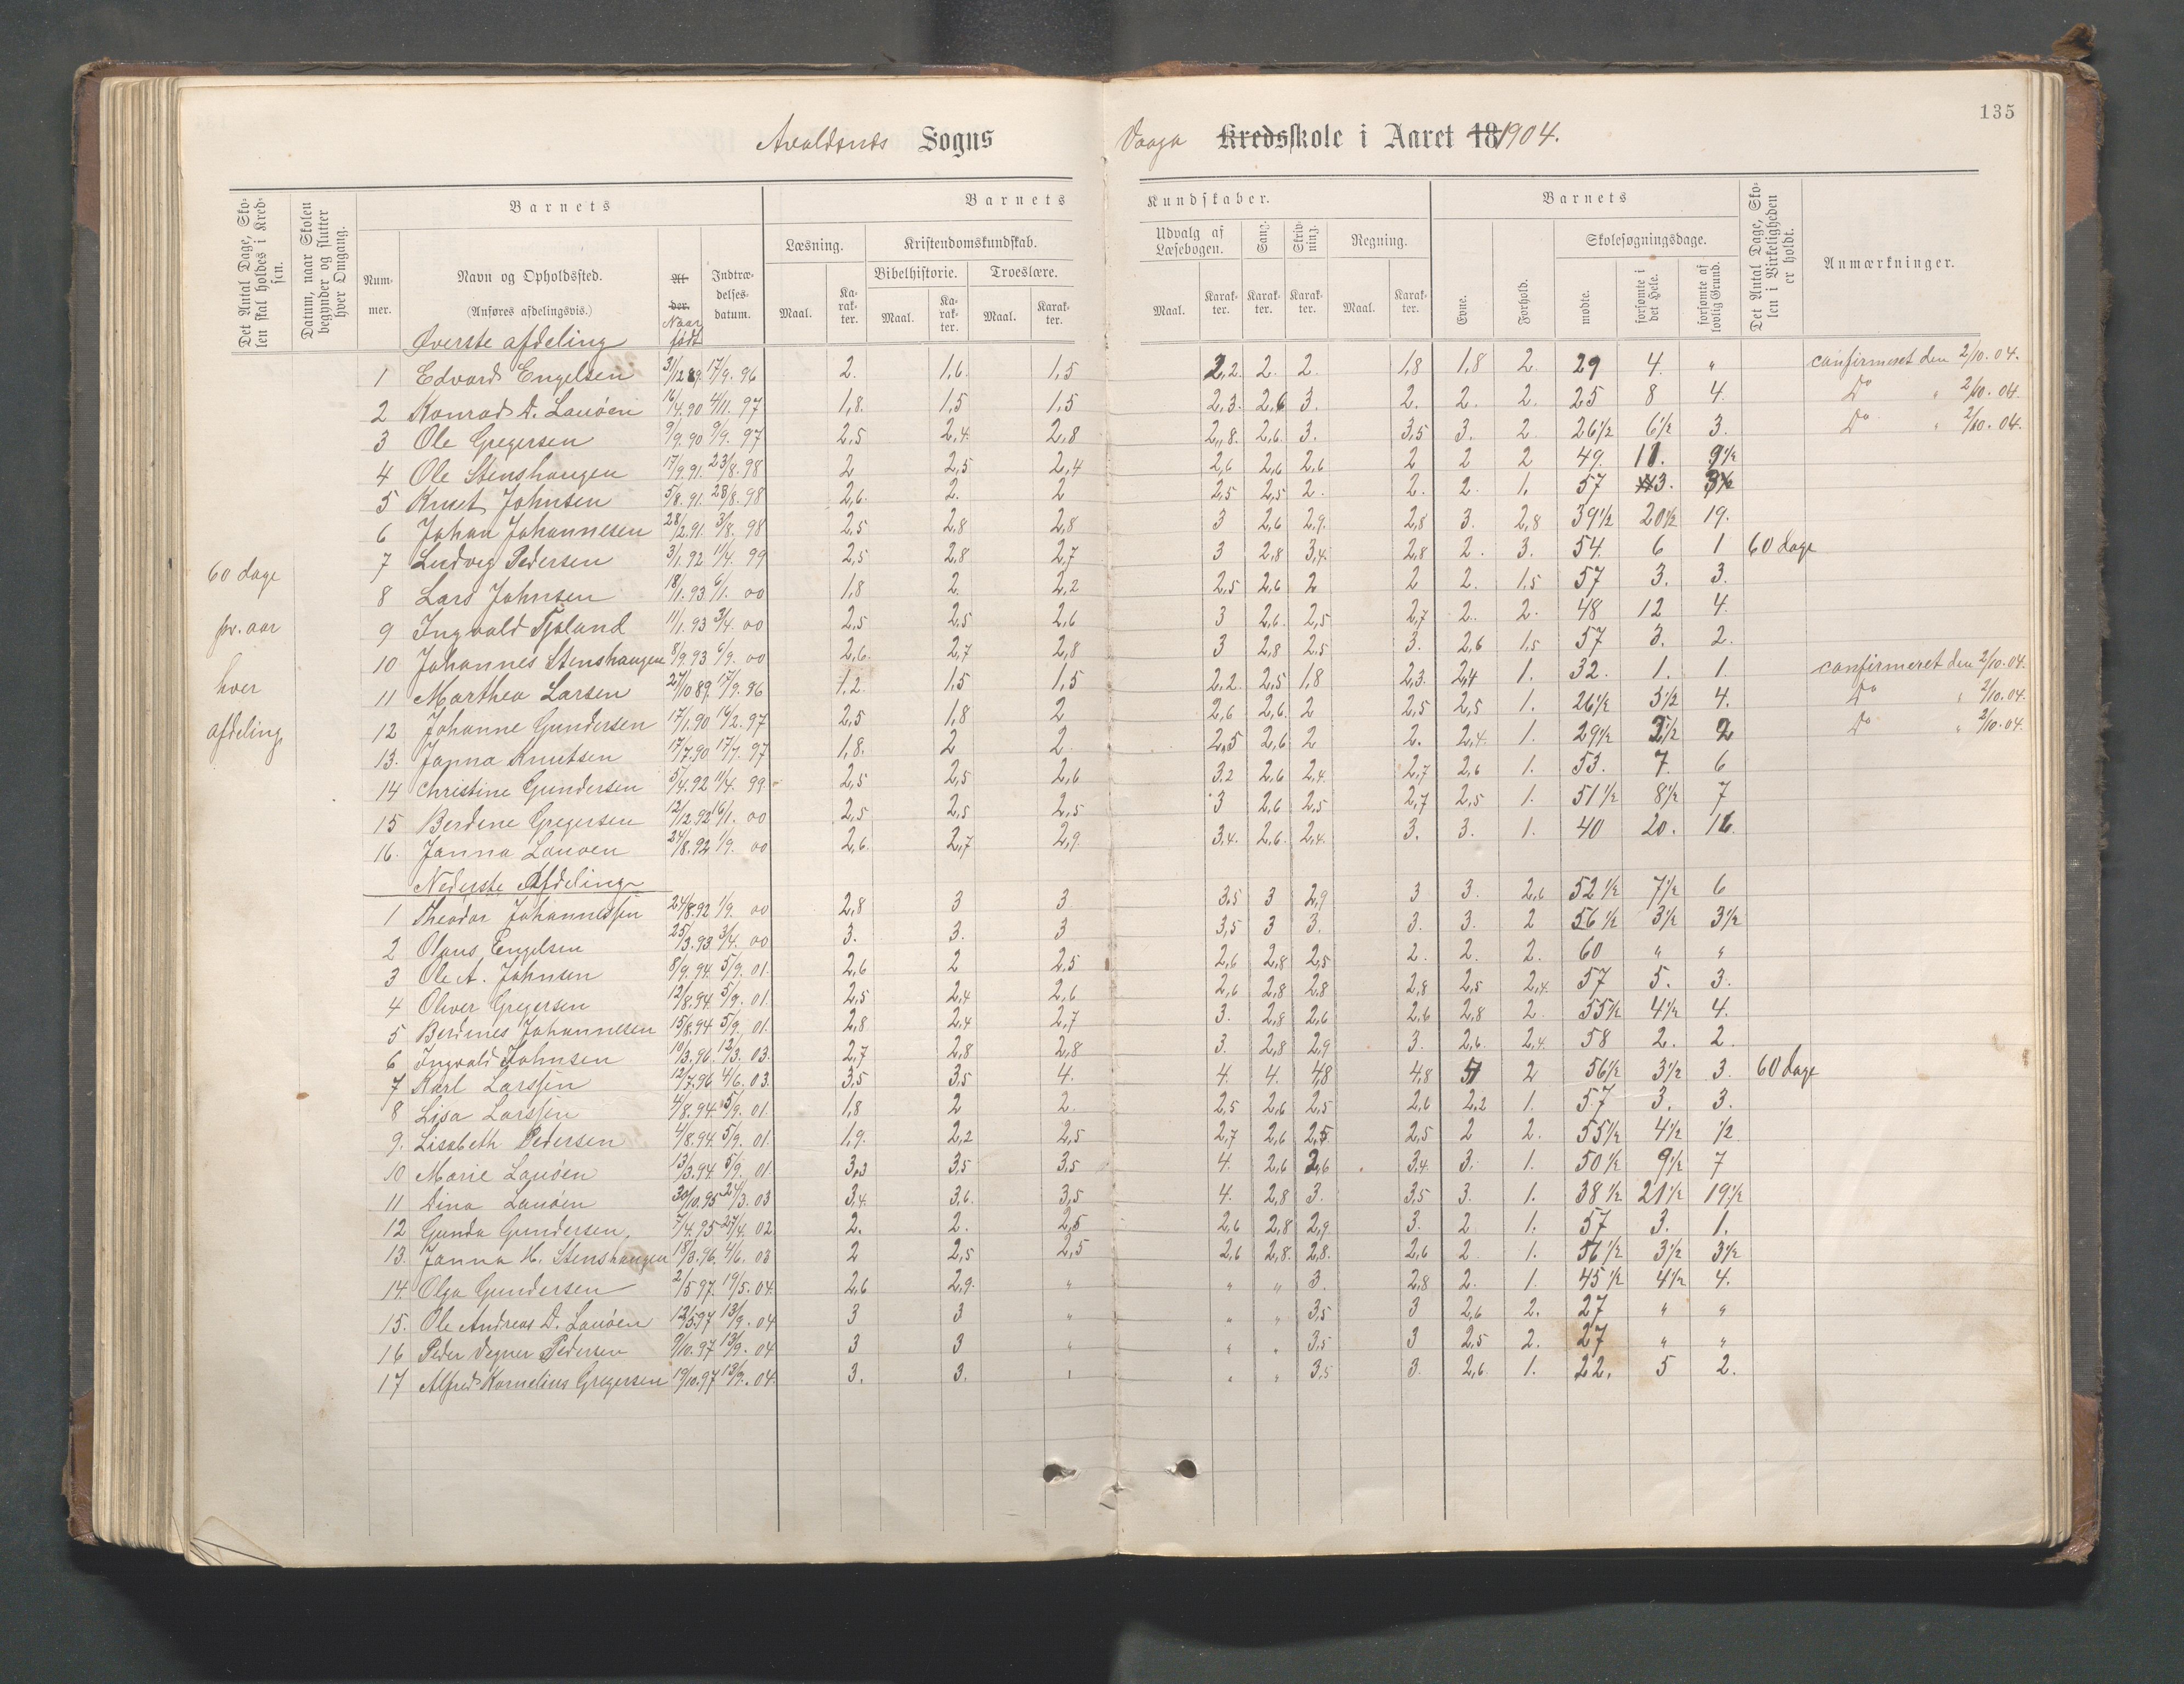 135
Avaldsnes Sogns Vaaga Kredsskole i Aaret 18 1904.
Det Antal Dage, Skolen skal holdes i Kredsen.
Datum, naar Skolen begynder og slutter hver Omgang.
Barnets
Nummer.
Navn og Opholdssted.
(Anføres afdelingsvis.)
Alder. Naar født
Indtrædelsesdatum.
Barnets Kundskaber.
Læsning.
Maal. Karakter.
Kristendomskundskab.
Bibelhistorie. Troeslære.
Maal. Karakter. Maal. Karakter.
Udvalg af Læsebogen. Sang. Skrivning. Regning.
Maal. Karakter. Karakter. Karakter. Maal. Karakter.
Barnets
Evne. Forhold.
Skolesøgningsdage.
mødte. forsømte i det Hele. forsømte af lovlig Grund.
Det Antal Dage, Skolen i Virkeligheden er holdt.
Anmærkninger.
60 dage
pr. aar
hver
afdeling
Øverste afdeling
1 Edvard Engelsen 31/12 89. 17/9. 96 2. 1,6. 1,5 2,2. 2. 2. 1,8 1,8 2. 29 4. " confirmeret den 2/10. 04.
2 Konrad D. Lauøen 16/4. 90 4/11. 97 1,8. 1,5 1,5 2,3. 2,6 3. 2. 2. 2. 25 8 4. Do " 2/10. 04.
3 Ole Gregersen 9/9. 90 9/9. 97 2,5 2,4. 2,8 2,8. 2,6. 3. 3,5 3. 2 26½ 6½ 3. Do " 2/10. 04.
4 Ole Stenshaugen 17/9. 91. 23/8. 98 2 2,5 2,4 2,6 2,6 2,6 2 2 2 49. 11. 9½
5 Knut Johnsen 5/8. 91. 28/8. 98 2,6. 2. 2 2,5 2,5 2. 2. 2. 1. 57 3. 3
6 Johan Johannesen 28/2. 91. 3/8. 98 2,5 2,8 2,8 3 2,6 2,9. 2,8 3. 2,8 39½ 20½ 19.
7 Ludvig Pedersen 3/1. 92 11/4. 99 2,5 2,8 2,7 3 2,8 3,4. 2,8 2. 3. 54. 6 1 60 dage
8 Lars Johnsen 18/1. 93 6/1. 00 1,8 2. 2,2 2,5 2,6 2 2 2. 1,5 57 3. 3.
9 Ingvald Tjøland 11/1. 93 3/4. 00 2,5 2,5 2,6 3 2,6. 2,5 2,7 2. 2. 48 12 4.
10 Johannes Stenshaugen 8/9. 93 6/9. 00 2,6. 2,7 2,8 3 2,8 2,5 3. 2,6 1,5 57 3. 2.
11 Marthea Larsen 27/10 89. 17/9. 96 1,2. 1,5 1,5 2,2. 2,5 1,8 2,3. 2,4 1. 32. 1. 1. confirmeret den 2/10. 04.
12 Johanne Gundersen 17/1. 90 16/2. 97 2,5 1,8 2 2,6 2,6. 2 2,5 2,5 1. 26½ 3½ 4. Do " 2/10. 04.
13. Janna Knutsen 17/7. 90 17/7. 97 1,8. 2 2 2,5 2,6 2 2. 2,4. 1. 29½ ½ 2 Do " 2/10. 04.
14 Christine Gundersen 5/4. 92 11/4. 99. 2,5 2,5 2,6 3,2 2,6 2,4. 2,7 2,6 1. 53. 7. 6
15 Berdine Gregersen 12/12. 92 16/1. 00 2,5 2,5 2,5 3 2,6 2,5 2,7 2,5 1. 51½ 8½ 7
16. Janna Lauøen 24/8. 92 1/9. 00 2,6. 2,7 2,9. 3,4. 2,6. 2,4. 3. 3. 1. 40 20. 16
Nederste Afdeling
1 Theodor Johannessen 24/8. 92 1/9. 00 2,8 3 3 3,5 3 2,9 3 3. 2,6 52½ 7½ 6
2 Olaus Engelsen 25/3. 93 3/4. 00 3. 3. 3 3,5 3 3. 3. 3. 2 56½ 3½ 3½
3 Ole A. Johnsen 8/9. 94. 5/9. 01. 2,6 2 2,5 2,6 2,8 2,5 2. 2. 2. 60 " "
4 Oliver Gregersen 12/8. 94. 5/9. 01. 2,5 2,4 2,6 2,6 2,8 2,8 2,8 2,5 2,4. 57 5. 3.
5 Berdines Johannesen 15/8. 94 5/9. 01. 2,8 2,4 2,7 3. 2,8 2,6 2,6 2,8 2. 55½ 4½ 4.
6 Ingvald Johnsen 10/3. 96. 12/3. 03. 2,7 2,8 2,8 3. 2,8 2,9 3. 2,6. 2,4. 58 2. 2.
7 Karl Larssen 12/7. 96 4/6. 03. 3,5 3,5 4. 4. 4. 4,8 4,8 2 56½ 3½ 3. 60 dage
8 Lisa Larssen 4/8. 94. 5/9. 01. 1,8 2 2. 2,5 2,6 2,5 2,6 2,2 1. 57 3. 3.
9. Lisabeth Pedersen 4/8. 94. 5/9. 01. 1,9. 2,2 2,5 2,7 2,6 2,5 2,5 2 2. 55½ 4½ ½
10 Marie Lauøen 13/3. 94. 5/9. 01. 3,3 3,5 3,5 4. 2,6 2,6 3,4. 3. 1. 50½ 9½ 7
11 Dina Lauøen 30/10. 95 24/3. 03 3,4. 3,6. 3,5 4. 2,8 3. 3,5 3. 1. 38½ 21½ 19½
12 Gunda Gundersen. 7/4. 95. 27/4. 02. 2. 2. 2,5 2,6 2,8 2,9. 3. 2 1. 57 3. 1.
13. Janna H. Stenshaugen 18/3. 96. 4/6. 03 2 2,5 2,5 2,6 2,8. 2,8. 2,6 2. 1. 56½ 3½ 3½
14. Olga Gundersen 2/5. 97. 19/5. 04. 2,6 2,9. " " " 3. 2,8 2. 1. 45½ 4½ 4.
15. Ole Andreas D. Lauøen 12/5. 97 13/9. 04 3 3 " " " 3,5 3 2,6 2. 27 " "
16 Peder Vegner Pedersen 9/10. 97 13/9. 04 3 3 " " " 3,5 3 2,5 2. 27 " "
17 Alfred Kornelius Gregersen 19/10. 97 13/9. 04. 3. 3. " " " 3,5 3. 2,6. 1. 22. 5 2.